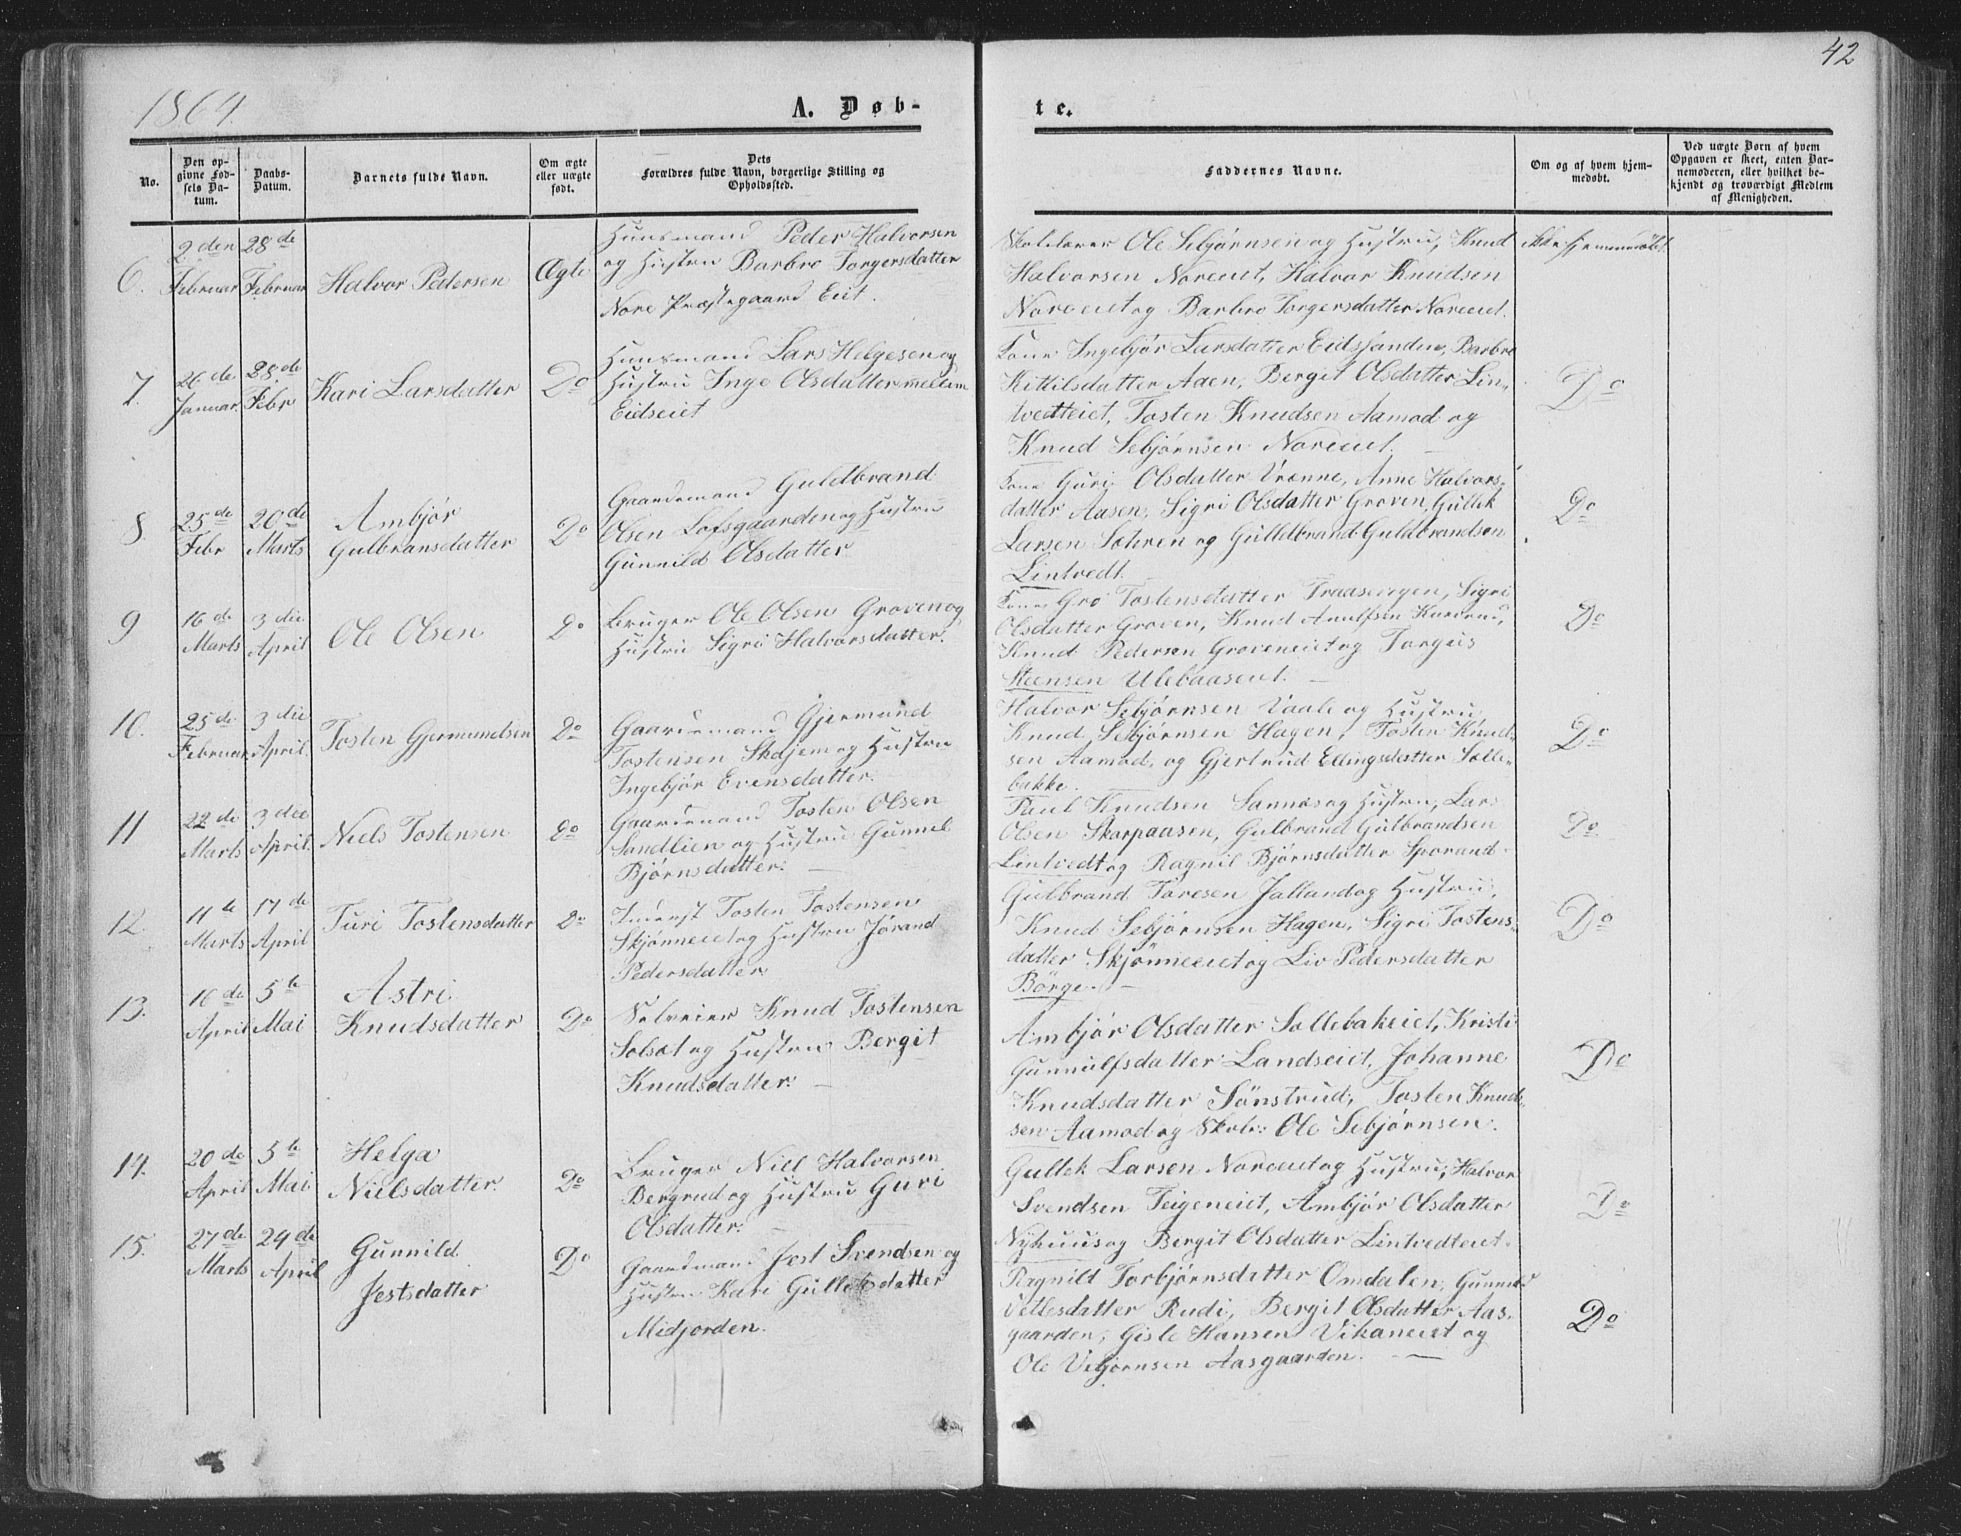 42
1864.
A. Døb-
te.
No.
Den opgivne Fødsels Datum.
Daabs-Datum.
Barnets fulde Navn.
Om ægte eller uægte født.
Dets Forældres fulde Navn, borgerlige Stilling og Opholdssted.
Faddernes Navne.
Om og af hvem hjemmedøbt.
Ved uægte Børn af hvem Opgaven er skeet, enten Barnemoderen, eller hvilket bekjendt og troværdigt Medlem af Menigheden.
6.
2den Februar
28de Februar
Halvor Pedersen
Ægte
Huusmand Peder Halvorsen
og Hustru Barbro Torgersdatter
Nore Præstegaard Eiet.
Skolelærer Ole Sebjørnsen og Hustru, Knud
Halvorsen Noreeiet, Halvor Knudsen
Noreeiet og Barbro Torgersdatter Noreeiet.
ikke hjemmedøbt
7.
26de Januar.
28de Febr
Kari Larsdatter
Do
Huusmand Lars Helgesen og
Hustru Inge Olsdatter mellem
Eidseiet
Kone Ingebjør Larsdatter Eidsjanden, Barbro
Kittilsdatter Aaen, Bergit Olsdatter Lin-
tvedteiet, Tosten Knudsen Aamod og
Knud Sebjørnsen Noreeiet.
Do
8.
25de Febr
20de Marts
Ambjør
Gulbransdatter
Do
Gaardemand Guldbrand
Olsen Lofsgaarden og Hustru
Gunnild Olsdatter
Kone Guri Olsdatter Vrænne, Anne Halvors-
datter Aasen, Sigri Olsdatter Groven, Gullek
Larsen Sohren og Gulldbrand Guldbrandsen
Lintvedt
Do
9
16de Marts
3die April
Ole Olsen
Do
Bruger Ole Olsen Groven og
Hustru Sigri Halvorsdatter.
Kone Gro Tostensdatter Traaseregen, Sigri
Olsdatter Groven, Knud
Knud Pedersen Groveneiet og Torgus
Steensen Ulebaaseiet.
Do
10.
25de Februar
3die April.
Tosten Gjermundsen
Do
Gaardemand Gjermund
Tostensen Skajem og Hustru
Ingebjør Evensdatter.
Halvor Sebjørnsen Vaale og Hustru
Knud Sebjørnsen Hagen, Tosten Knud-
sen Aamod, og Gjertrud Ellingsdatter Solle-
bakke.
Do
11
22de Marts
3die April.
Niels Tostensen
Do
Gaardemand Tosten Olsen
Sandlien og Hustru Gunnil
Bjørnsdatter.
Paul Knudsen Sannes og Hustru, Lars
Olsen Skarpaasen, Gulbrand Gulbrandsen
Lintvedt og Ragnil Bjørnsdatter Sporand
Do
12.
11te Marts
17de April
Turi Tostensdatter
Do
Inderst Tosten Tostensen
Skjønneeiet og Hustru Jørand
Pedersdatter
Gulbrand Toresen Jalland og Hustru,
Knud Sebjørnsen Hagen, Sigri Tostens-
datter Skjønneeiet og Liv Pedersdatter
Børge.
Do
13.
16de April
5te Mai
Astri
Knudsdatter
Do
Selveier Knud Tostensen
Solsæt og Hustru Bergit
Knudsdatter.
Ambjør Olsdatter Sollebakeiet, Kristi
Gunnulfsdatter Landseiet, Johanne
Knudsdatter Sønstrud, Tosten Knud-
sen Aamod og Skole: Ole Sebjørnsen.
Do
14.
20de April
5te Mai
Helga
Nielsdatter.
Do
Bruger Niel Halvorsen
Bergrud og Hustru Guri
Olsdatter.
Gullek Larsen Noreeiet og Hustru, Halvor
Svendsen Teigeneiet, Ambjør Olsdatter
Nyhuus og Bergit Olsdatter Lintvedteiet.
Do
15.
27de Marts
24de April
Gunnild
Jestsdatter
Do
Gaardmand Jest Svendsen og
Hustru Kari Gulleksdatter
Midjorden.
Ragnilt Torbjørnsdatter Omdalen, Gunnild
Vetlesdatter Rudi, Bergit Olsdatter Aas-
gaarden, Gisle Hansen Vikaneiet og
Ole Vebjørnsen Aasgaarden.
Do